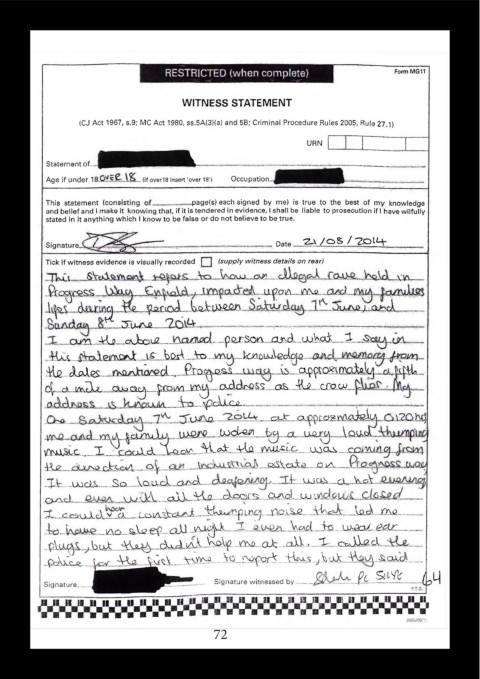 RESTRICTED (when complete)
Form MG11
WITNESS STATEMENT
(CJ Act 1967, s.9; MC Act 1980, ss.5A(3)(a) and 5B; Criminal Procedure Rules 2005, Rule 27.1)
URN
Statement of
Age if under 18 OVER 18 (if over 18 insert 'over 18') Occupation
This statement (consisting of page(s) each signed by me) is true to the best of my knowledge
and belief and I make it knowing that, if it is tendered in evidence, I shall be liable to prosecution if I have wilfully
stated in it anything which I know to be false or do not believe to be true.
Signature Date 21/08/2014
Tick if witness evidence is visually recorded (supply witness details on rear)
This statement refers to how an illegal rave held in
Progress Way Enfield, impacted upon me and my families
lifes during the period between Saturday 7th June, and
Sanday 8th June 2014.
I am the above named person and what I say in
this statement is best to my knowledge and memory from
the dates mentioned. Progress way is approximately a fifth
of a mile away from my address as the crow flies. My
address is known to police.
On Saturday 7th June 2014 at approxmately 0120hrs
me and my family were woken by a very loud thumping
music. I could hear that the music was coming from
the direction of an industrial estate on Progress way
It was so loud and deafening. It was a hot evening
and even with all the doors and windows closed
I could hear a constant thumping noise that led me
to have no sleep all night I even had to wear ear
plugs, but they didn't help me at all. I called the
police for the first time to report this, but they said
Signature Signature witnessed by PC
64
72